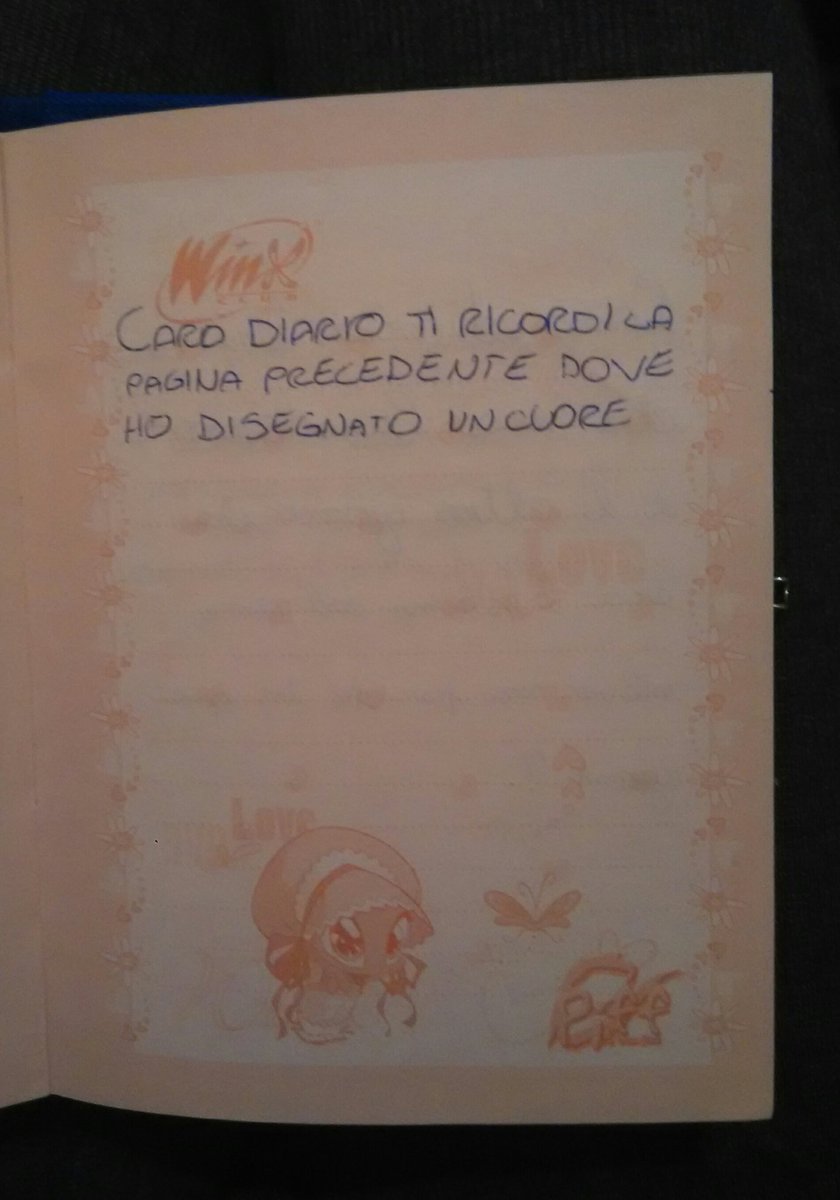 Winx
CLUB
CARO DIARIO TI RICORDI LA
PAGINA PRECEDENTE DOVE
HO DISEGNATO UN CUORE
Love
Love